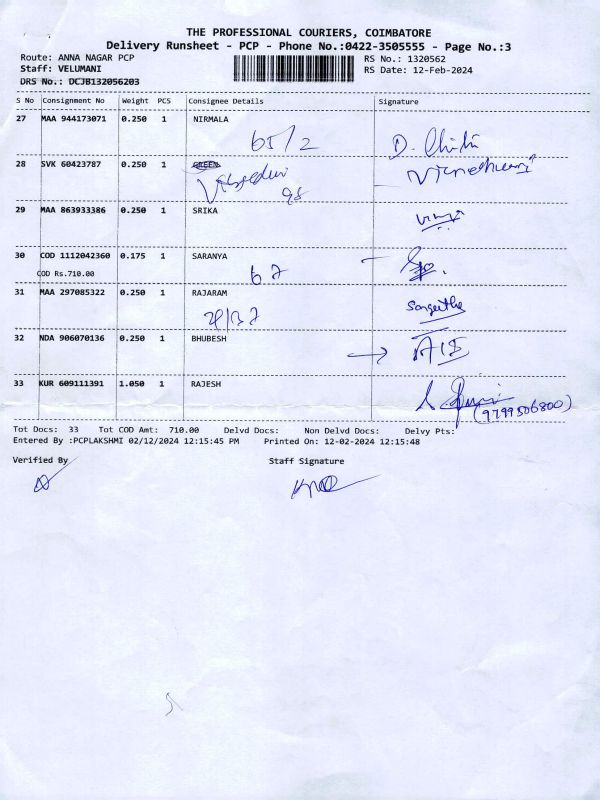 THE PROFESSIONAL COURIERS, COIMBATORE
Delivery Runsheet - PCP - Phone No.:0422-3505555 - Page No.:3
Route: ANNA NAGAR PCP RS No.: 1320562
Staff: VELUMANI RS Date: 12-Feb-2024
DRS No.: DCJB132056203
S No Consignment No Weight PCS Consignee Details Signature
27 MAA 944173071 0.250 1 NIRMALA
65/2
28 SVK 60423787 0.250 1 GREEN
98
29 MAA 863933386 0.250 1 SRIKA
30 COD 1112042360 0.175 1 SARANYA
COD Rs.710.00
31 MAA 297085322 0.250 1 RAJARAM Sangeetha
32 NDA 906070136 0.250 1 BHUBESH
33 KUR 609111391 1.050 1 RAJESH
(9799506800)
Tot Docs: 33 Tot COD Amt: 710.00 Delvd Docs: Non Delvd Docs: Delvy Pts:
Entered By :PCPLAKSHMI 02/12/2024 12:15:45 PM Printed On: 12-02-2024 12:15:48
Verified By Staff Signature